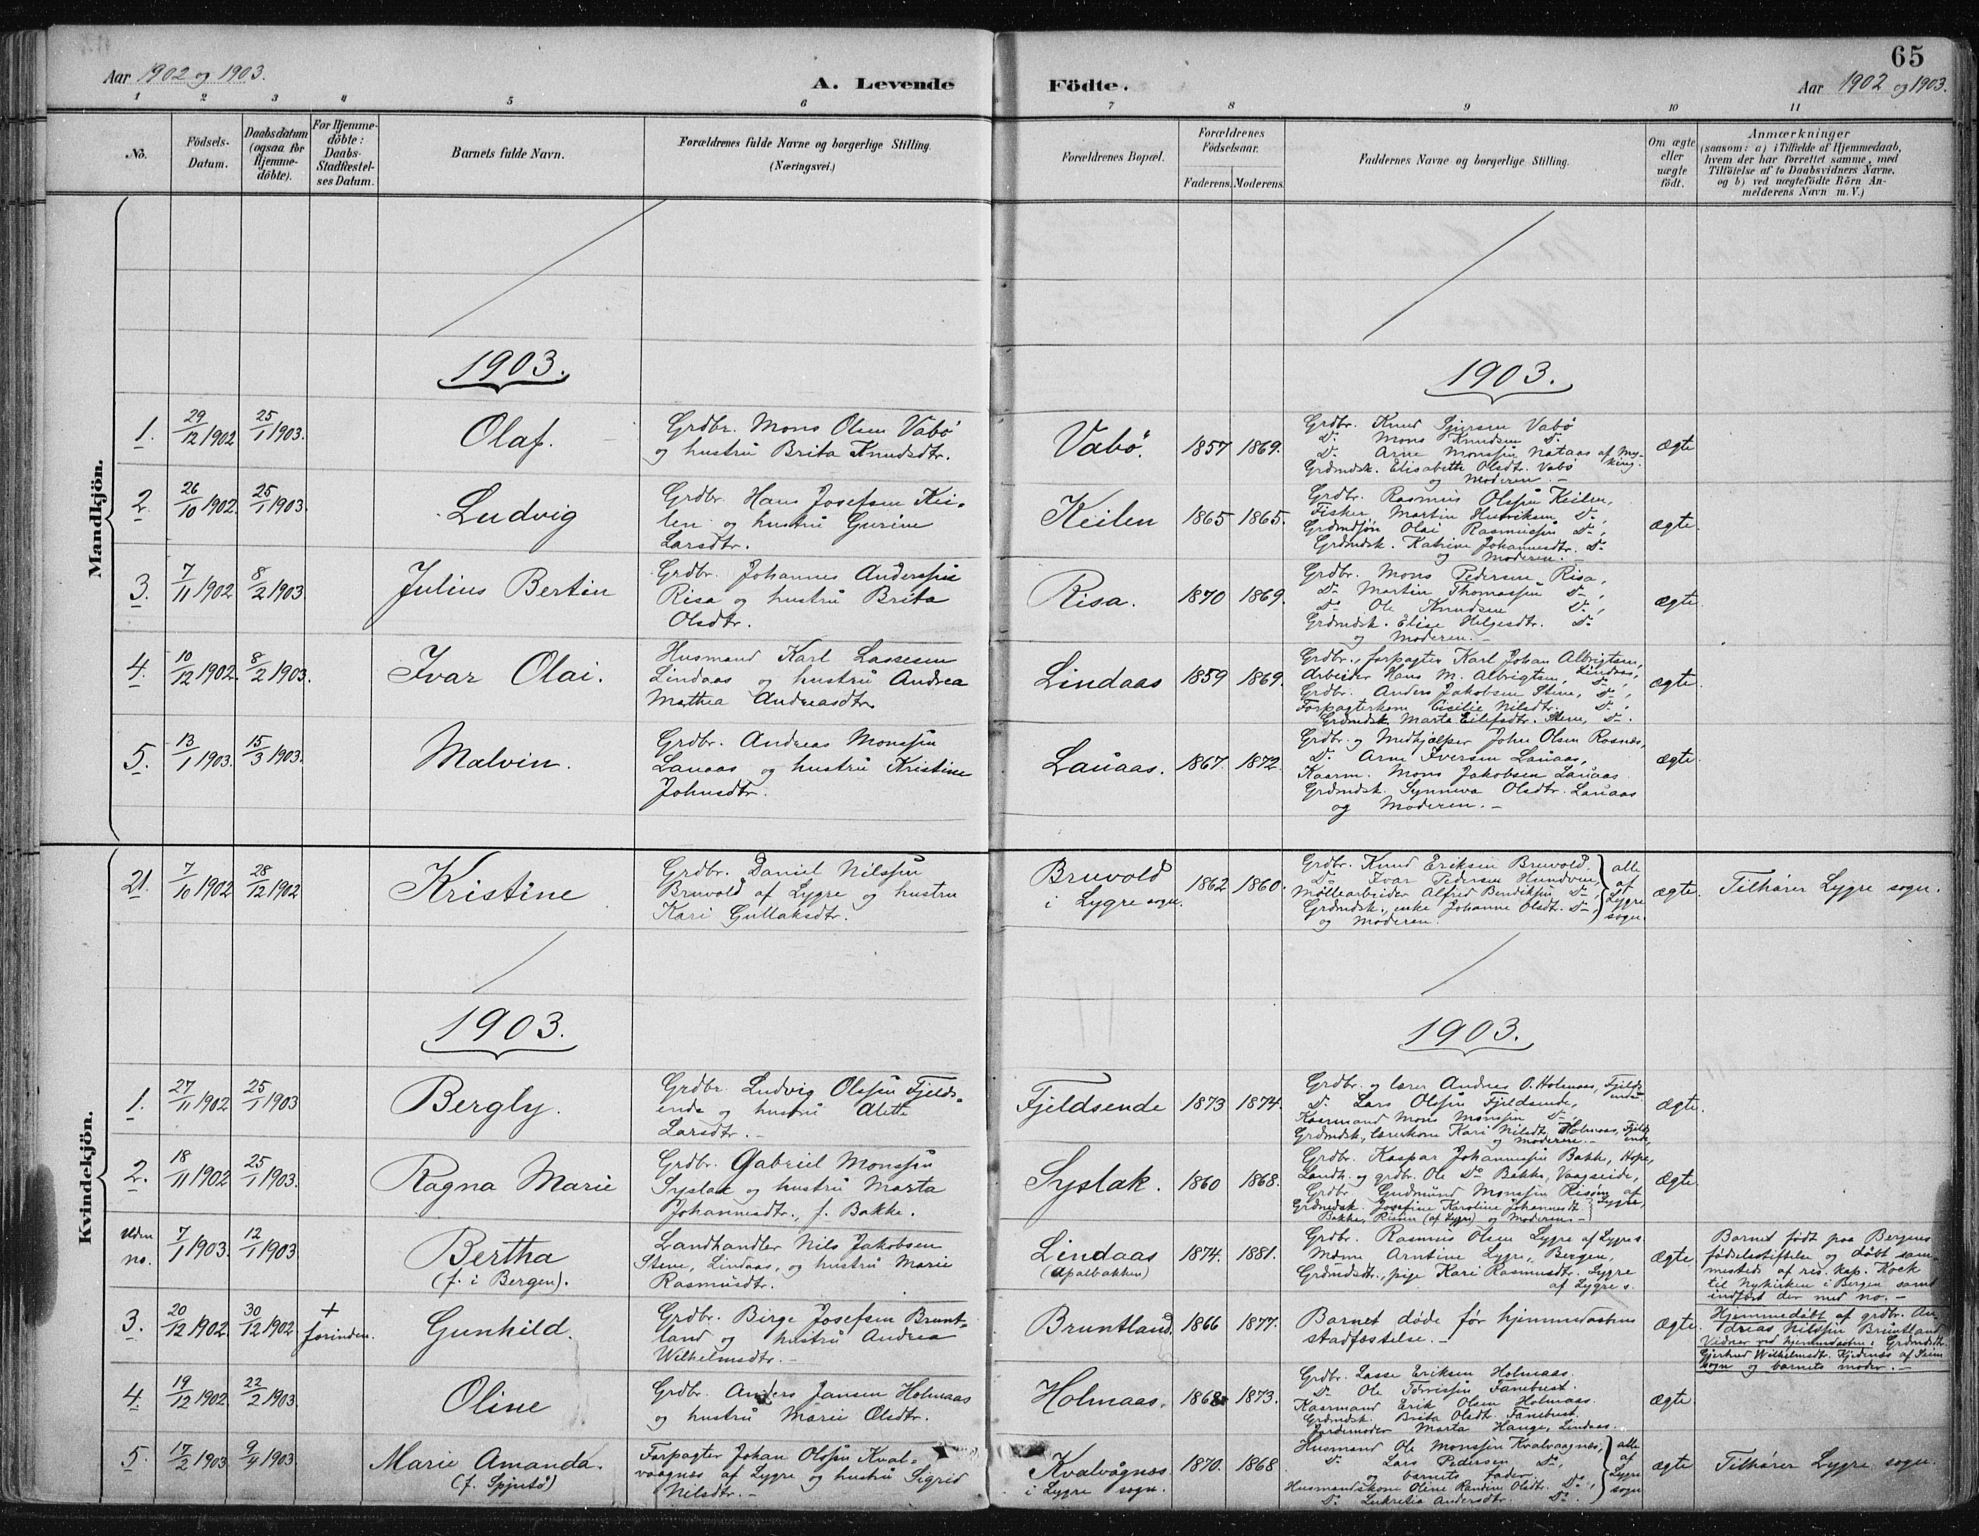 65
Aar 1902 og 1903.
A. Levende Födte.
Aar 1902 og 1903.
1 2 3 4 5 6 7 8 9 10 11
No.
Födsels-Datum.
Daabsdatum (ogsaa for Hjemme-döbte).
For Hjemme-döbte: Daabs-Stadfæstel-ses Datum.
Barnets fulde Navn.
Forældrenes fulde Navne og borgerlige Stilling. (Næringsvei.)
Forældrenes Bopæl.
Forældrenes Födselsaar.
Faderens. Moderens.
Faddernes Navne og borgerlige Stilling.
Om ægte eller uægte födt.
Anmærkninger
(saasom: a) i Tilfælde af Hjemmedaab,
hvem der har forrettet samme, med
Tilföielse af to Daabsvidners Navne,
og b) ved uægtefödte Börn An-
melderens Navn m. V.)
Mandkjön.
1903.
1903.
1. 29/12 1902 25/1 1903.
Olaf.
Grdbr. Mons Olsen Vabö
og hustru Brita Knudsdtr.
Vabö. 1857 1869.
Grdbr. Knud Vabö
Do Mons Knudsen Do
Do Arne Monssen Nataas af My-
king.
Grdmdsk. Elisabethe Olsdtr. Vabö
og Moderen. –
ægte
2. 26/10 1902. 25/1 1903.
Ludvig
Grdbr. Hans Josefsen Kei-
len og hustru Gurine
Larsdtr.
Keilen 1865 1865.
Grdbr. Rasmus Olssen Keilen,
Fisker Martin Henriksen Do,
Grdmdsøn Olai Rasmussen Do,
Grdmdsk. Katrine Johannesdtr. Do
og Moderen. –
ægte
3. 7/11 1902 8/2 1903
Julius Bertin
Grdbr. Johannes Anderssen
Risa og hustru Brita
Olsdtr.
Risa. 1870 1869.
Grdbr. Mons Pedersen Risa,
Do Martin Thomassen Do,
Do Ole Knudsen Do,
Grdmdsk. Elise Helgesdtr. Do
og Moderen. –
ægte
4. 10/12 1902. 8/2 1903.
Ivar Olai.
Husmand Karl Lassesen
Lindaas og hustru Andrea
Mathea Andreasdtr.
Lindaas 1859 1869.
Grdbr., forpagter Karl Johan Albrigtsen,
Arbeider Hans M. Albrigtsen, Lindaas,
Grdbr. Anders Jakobsen Stene, Do,
Forpagterkone Cecilie Nilsdtr. Do,
Grdmdsk. Marta Eilefsdtr. Stene, Do.
ægte
5. 13/1 1903. 15/3 1903.
Malvin.
Grdbr. Andreas Monssen
Lauaas og hustru Kristine
Johnsdtr.
Lauaas. 1867. 1872.
Grdbr. og Medhjælper John Olsen Rosnes,
Do Arne Iversen Lauaas,
Kaarm. Mons Jakobsen Lauaas
Grdmdsk. Synneva Olsdtr. Lauaas
og Moderen. –
ægte
Kvindekjön.
21. 7/10 1902 28/12 1902
Kristine
Grdbr. Daniel Nilssen
Bruvold af Lygre og hustru
Kari Gullaksdtr.
Bruvold
i Lygre sogn. 1862 1860.
Grdbr. Knud Eriksen Bruvold
Do Ivar Pedersen Hundven
Möllearbeider Alfred Bendiksen Do
Grdmdsk., enke Johanne Olsdt. Do
og Moderen.
alle af Lygre sogn.
ægte.
Tilhører Lygre sogn.
1903.
1903.
1. 27/11 1902 25/1 1903
Bergly.
Grdbr. Ludvig Olssen Fjelds-
ende og hustru Alette
Larsdtr. –
Fjeldsende 1873 1874.
Grdbr. og lærer Andreas O. Holmaas, Fjelds-
ende
Do Lars Olssen Fjeldsende,
Kaarmand Mons Monssen Do,
Grdmdsk., lærerkone Kari Nilsdt. Holmaas, Fjelds-
ende
og Moderen. –
ægte.
2. 18/11 1902 25/1 1903.
Ragna Marie
Grdbr. Gabriel Monssen
Syslak og hustru Marta
Johannesdtr., f. Bakke.
Syslak. 1860 1868.
Grdbr. Kaspar Johannessen Bakke, Hope,
Landh. og grdbr. Ole Do Bakke, Vaagseide,
Grdbr. Gudmund Monssen af Lygre,
Grdmdsk. Josefine Karoline Johannesdt.
Bakke, (af Lygre) og Moderen. –
ægte.
Uden
no. 7/1 1903. 12/1 1903
Bertha
(f. i Bergen).
Landhandler Nils Jakobsen
Stene, Lindaas, og hustru Marie
Rasmusdt.
Lindaas
(Apalbakken) 1874. 1881.
Grdbr. Rasmus Olsen Lygre af Lygre s.
Mdme Arntine Lygre, Bergen,
Grdmdsdt., pige Kari Rasmusdt. Lygre
af Lygre s.
ægte
Barnet født paa Bergens
fødselsstiftelse og døbt sam-
mesteds af res. kap. Kock
til Nykirken i Bergen samt
indført der med no. –
3. 20/12 1902. 30/12 1902 + forinden.
Gunhild.
Grdbr. Birge Josefsen Brunt-
land og hustru Andrea
Wilhelmsdtr. –
Bruntland 1866 1877.
Barnet døde før hjemmedaabens
stadfæstelse. –
ægte
Hjemmedøbt af grdbr. An-
dreas Nilssen Bruntland.
Vidner ved hjemmedaaben: Grdmdsdt.
Gjertrud Wilhelmsdt. af Seim
sogn og barnets moder. –
4. 19/12 1902. 22/2 1903.
Oline
Grdbr. Anders Jansen Holmaas
og hustru Marie Olsdtr.
Holmaas. 1868 1873.
Grdbr. Lasse Eriksen Holmaas.
Do Ole Tørrissen Fanebust.
Kaarmand Erik Olsen Holmaas.
Grdmdsk. Brita Olsdt. Fanebust.
Jordemoder Marta Hauge, Lindaas.
ægte.
5. 17/2 1903 9/4 1903
Marie Amanda.
(f. )
Forpagter Johan Olssen Kval-
vaagnes af Lygre og hustru Sigrid
Nilsdtr. –
Kvalvågnes
i Lygre sogn. 1870. 1868
Husmand Ole Monssen Kvalvaagnes,
Do Lars Pedersen Do,
og barnets fader.
Husmandskone Oline Randine Olsdt. Do,
Do Lukretia Andersdtr. Do.
alle af Lygre sogn
ægte
Tilhører Lygre sogn.